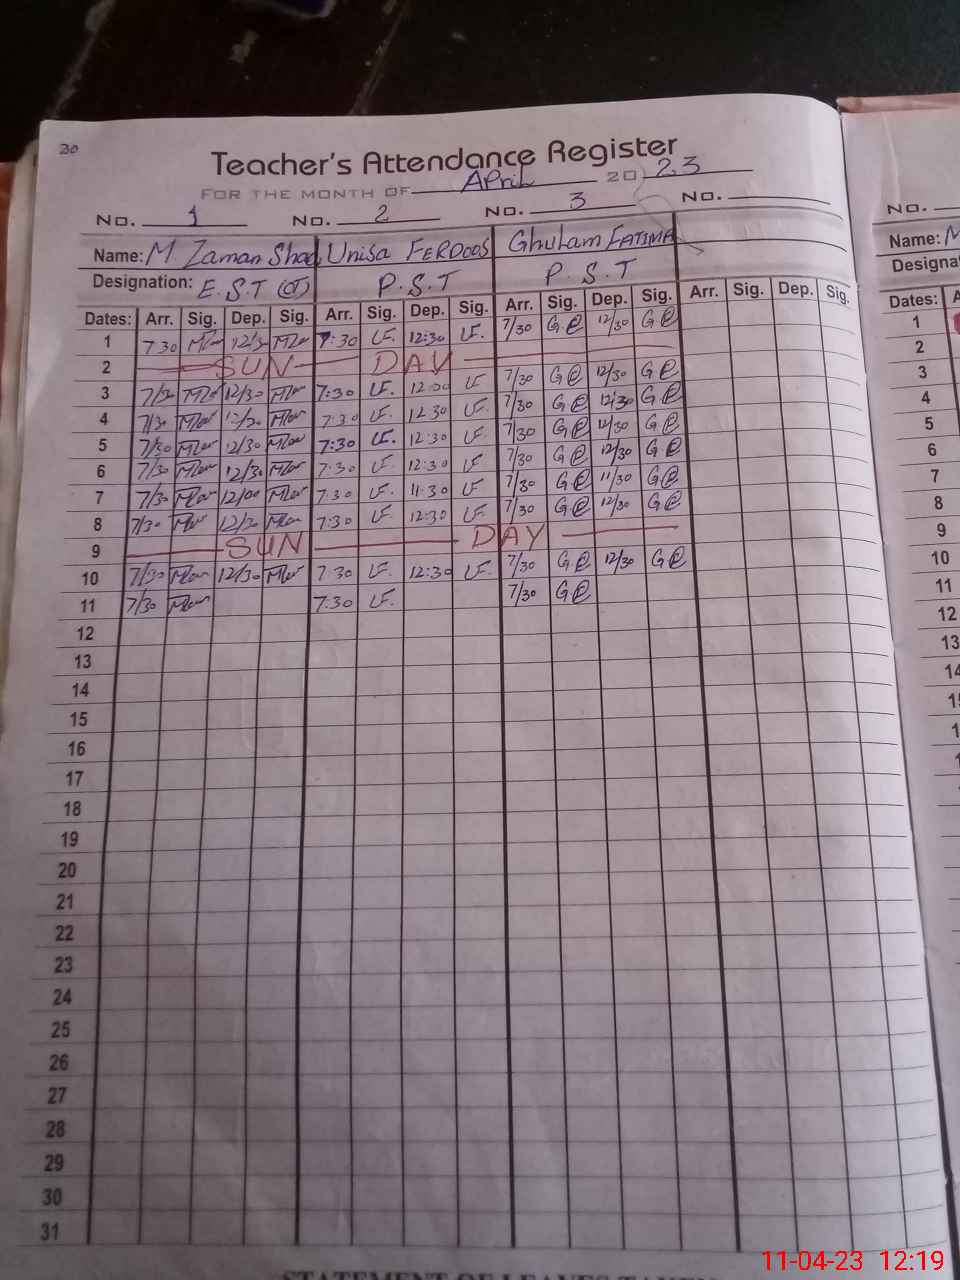 30
Teacher's Attendance Register
FOR THE MONTH OF April 20 23
No. 1 No. 2 No. 3 No.
Name: M. Zaman Shad Unisa FERDOOS Ghulam FATIMA
Designation: E.S.T P.S.T P.S.T
Dates: Arr. Sig. Dep. Sig. Arr. Sig. Dep. Sig. Arr. Sig. Dep. Sig. Arr. Sig. Dep. Sig.
1 730 12/30 7:30 LF. 12:30 LF. 7/30 G.@ 12/30 G@
2 SUN DAY
3 7/30 12/30 7:30 LF. 12:30 LF 7/30 G@ 12/30 G@
4 7/30 12/30 7:30 LF. 12:30 LF. 7/30 G@ 12/30 G@
5 7/30 12/30 7:30 LF. 12:30 LF 7/30 G@ 12/30 G@
6 7/30 12/30 7:30 LF. 12:30 LF. 7/30 G@ 12/30 G@
7 7/30 12/00 7:30 LF. 11:30 LF 7/30 G@ 11/30 G@
8 7/30 12/30 7:30 LF 12:30 LF 7/30 G@ 12/30 G@
9 SUN DAY
10 7/30 12/30 7:30 LF. 12:30 LF. 7/30 G.@ 12/30 G@
11 7/30 7:30 LF. 7/30 G@
12
13
14
15
16
17
18
19
20
21
22
23
24
25
26
27
28
29
30
31
No.
Name: M
Dates:
1
2
3
4
5
6
7
8
9
10
11
12
13
11-04-23 12:19